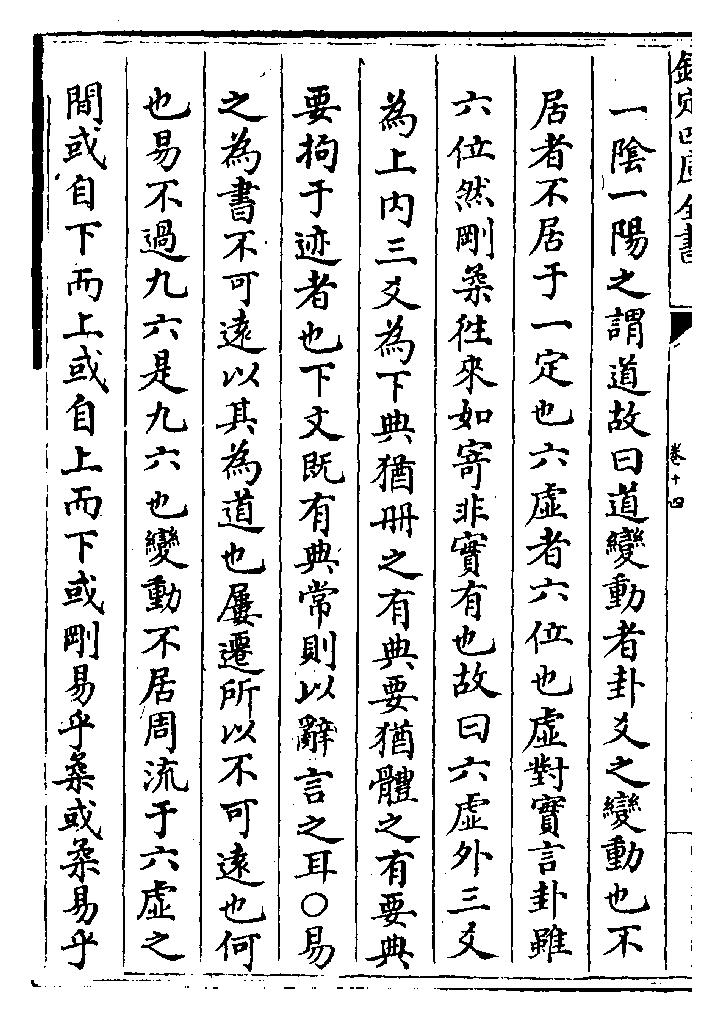 欽定四庫全書
卷十四
一陰一陽之謂道故曰道變動者卦爻之變動也不
居者不居于一定也六虛者六位也虛對實言卦雖
六位然剛柔徃來如寄非實有也故曰六虛外三爻
為上内三爻為下典猶冊之有典要猶體之有要典
要拘于迹者也下文既有典常則以辭言之耳○易
之為書不可逺以其為道也屢遷所以不可逺也何
也易不過九六是九六也變動不居周流于六虛之
間或自下而上或自上而下或剛易乎柔或柔易乎